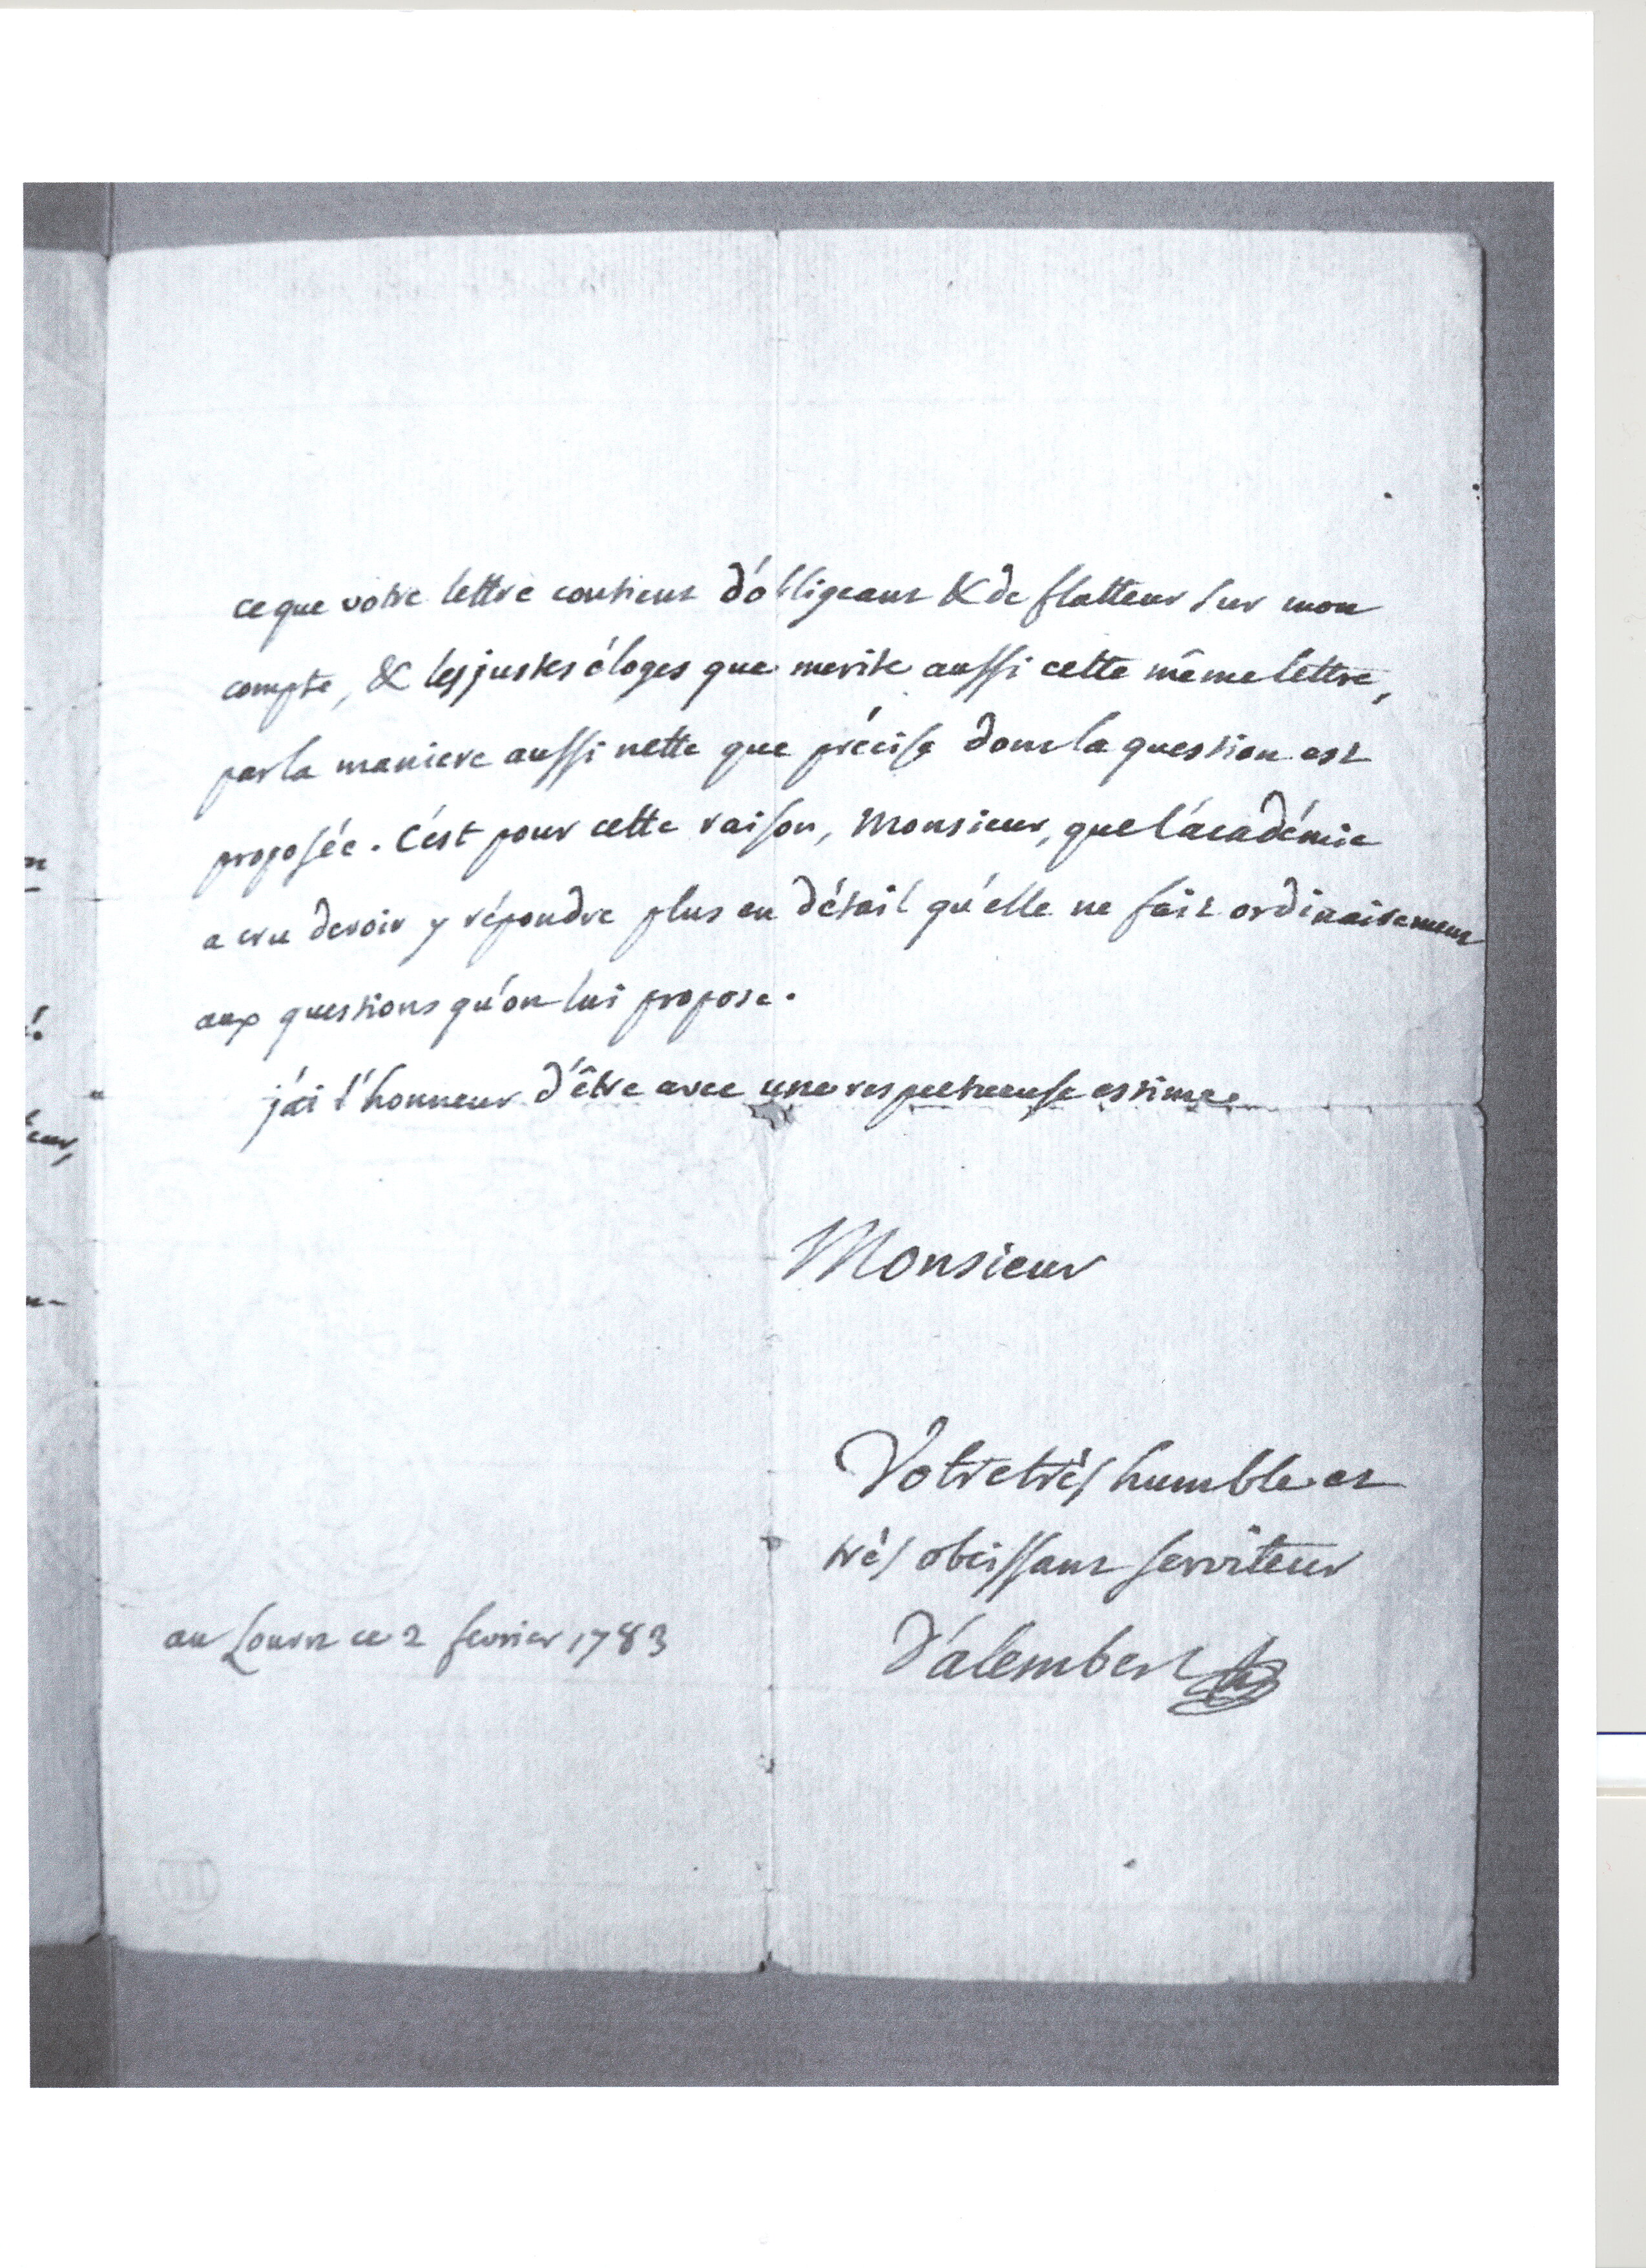 ce que votre lettre contient d'obligeant & de flatteur sur mon
compte, & les justes éloges que merite aussi cette même lettre,
par la maniere aussi nette que précise dont la question est
proposée. C'est pour cette raison, Monsieur, que l'académie
a cru devoir y répondre plus en détail qu'elle ne fait ordinairement
aux questions qu'on lui propose.
j'ai l'honneur d'être avec une respectueuse estime
Monsieur
Votre très humble et
très obeissant serviteur
D'alembert
au Louvre ce 2 fevrier 1783